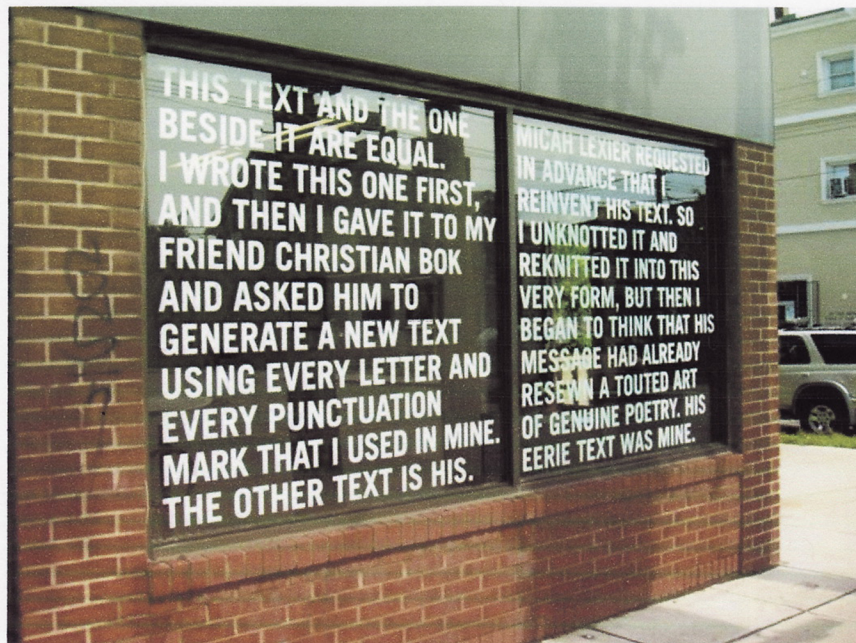 THIS TEXT AND THE ONE
BESIDE IT ARE EQUAL.
I WROTE THIS ONE FIRST,
AND THEN I GAVE IT TO MY
FRIEND CHRISTIAN BOK
AND ASKED HIM TO
GENERATE A NEW TEXT
USING EVERY LETTER AND
EVERY PUNCTUATION
MARK THAT I USED IN MINE.
THE OTHER TEXT IS HIS.
MICAH LEXIER REQUESTED
IN ADVANCE THAT I
REINVENT HIS TEXT. SO
I UNKNOTTED IT AND
REKNITTED IT INTO THIS
VERY FORM, BUT THEN I
BEGAN TO THINK THAT HIS
MESSAGE HAD ALREADY
RESEWN A TOUTED ART
OF GENUINE POETRY. HIS
EERIE TEXT WAS MINE.